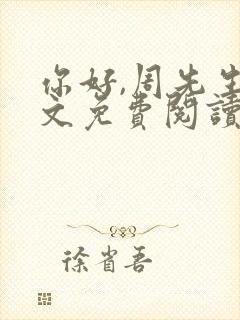 你好,周先生
文免費閱讀
徐省吾